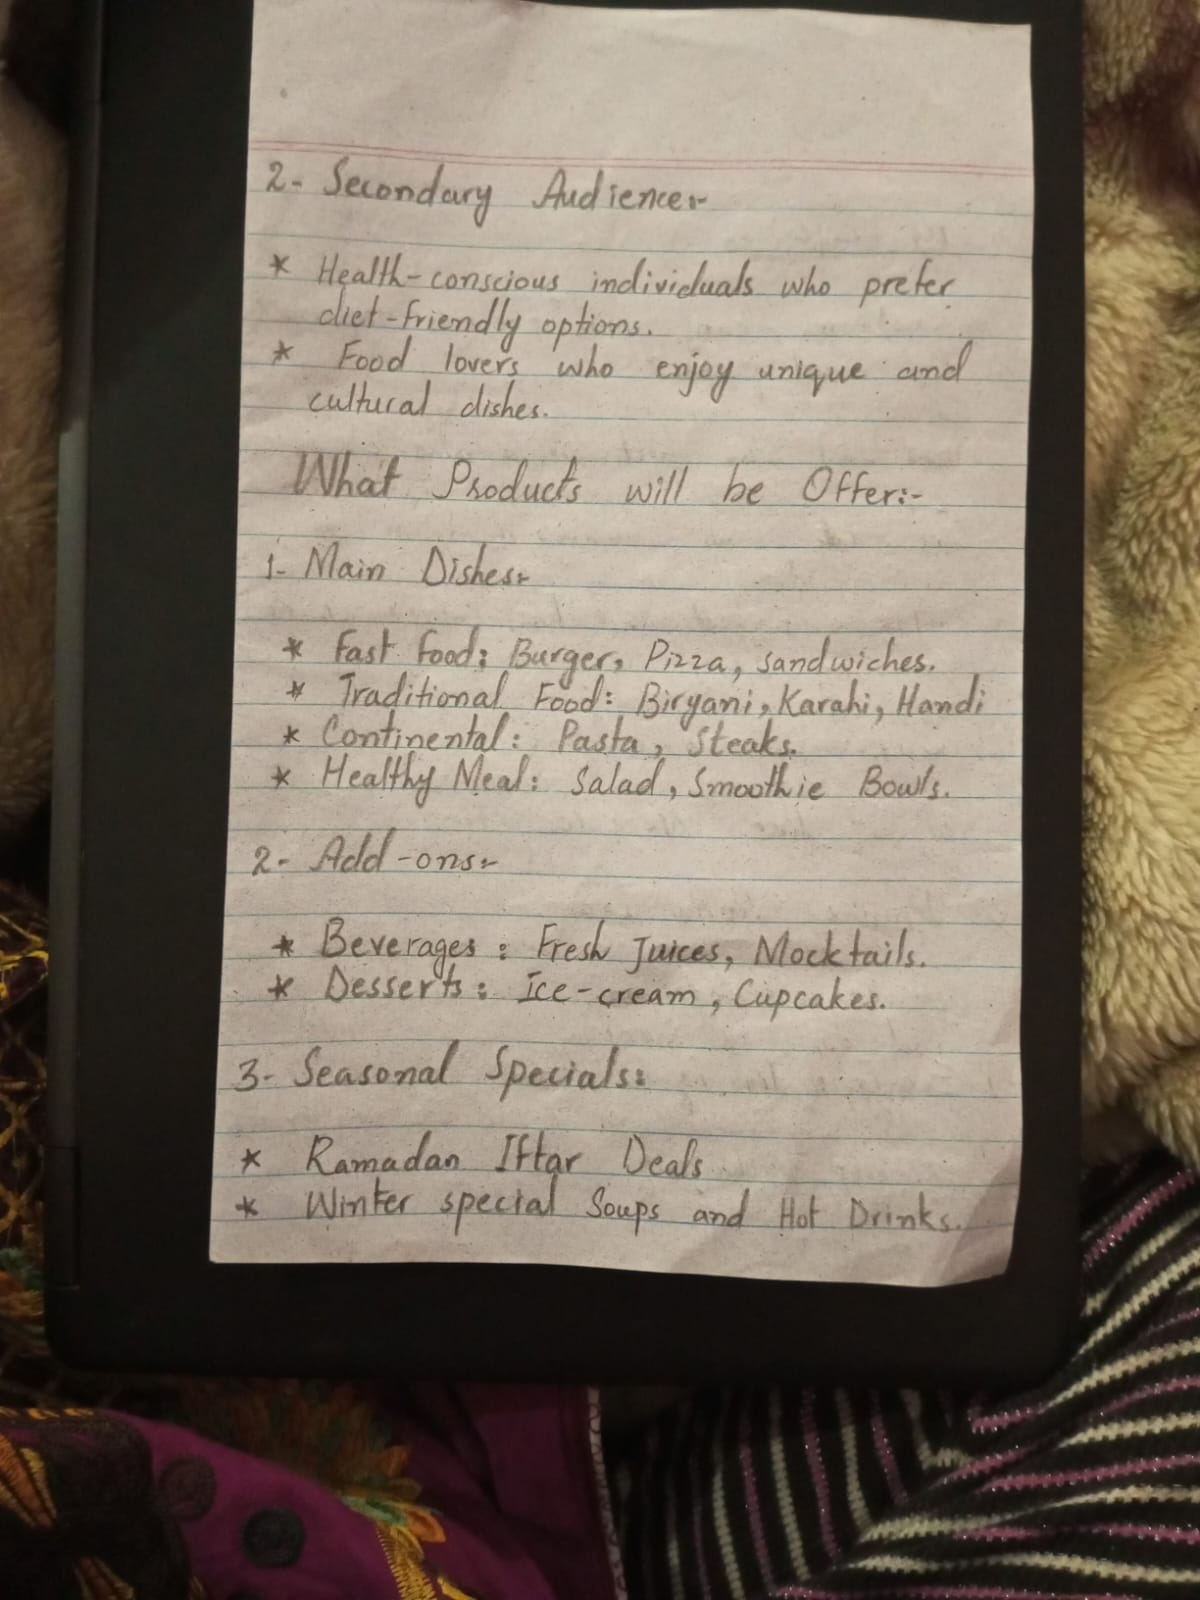 2- Secondary Audience:-
* Health-conscious individuals who prefer
diet-friendly options.
* Food lovers who enjoy unique and
cultural dishes.
What Products will be Offer:-
1- Main Dishes:-
* Fast Food: Burger, Pizza, Sandwiches.
* Traditional Food: Biryani, Karahi, Handi
* Continental: Pasta, Steaks.
* Healthy Meal: Salad, Smoothie Bowls.
2- Add-ons:-
* Beverages: Fresh Juices, Mocktails.
* Desserts: Ice-cream, Cupcakes.
3- Seasonal Specials:
* Ramadan Iftar Deals
* Winter special Soups and Hot Drinks.